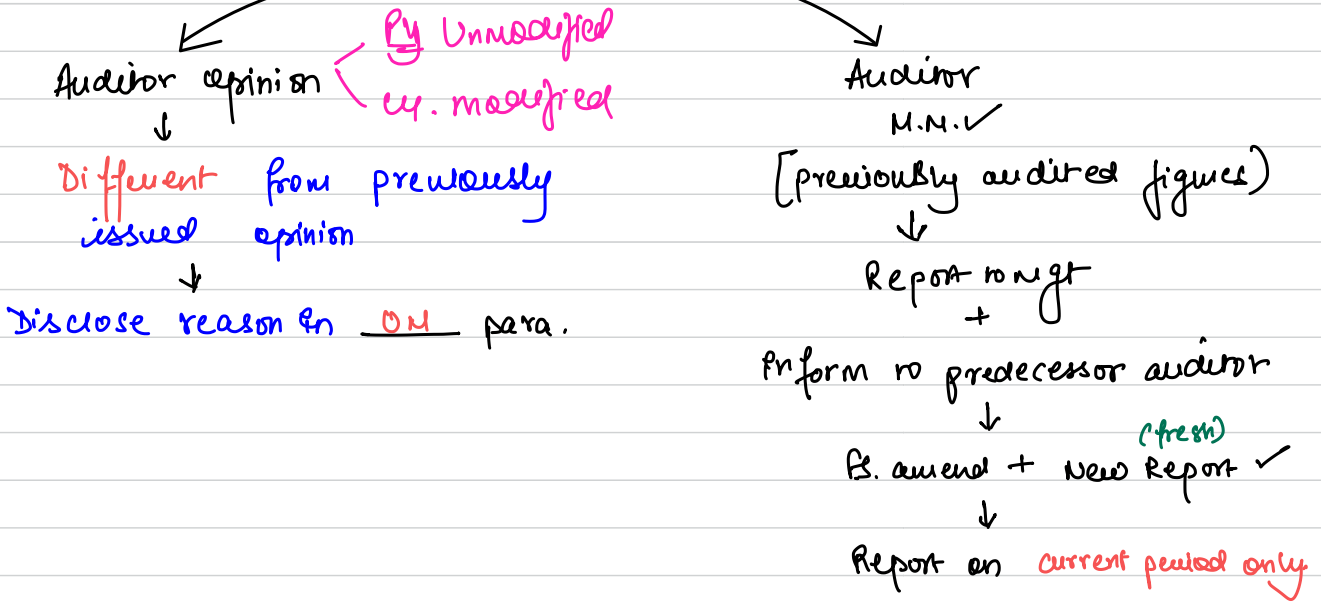 Auditor opinion
PY Unmodified
CY. modified
Different from previously
issued opinion
Disclose reason in OM para.
Auditor
M.M.✓
[previously audited figures)
Report to mgt
+
Inform to predecessor auditor
(fresh)
FS. amend + New Report ✓
Report on current period only